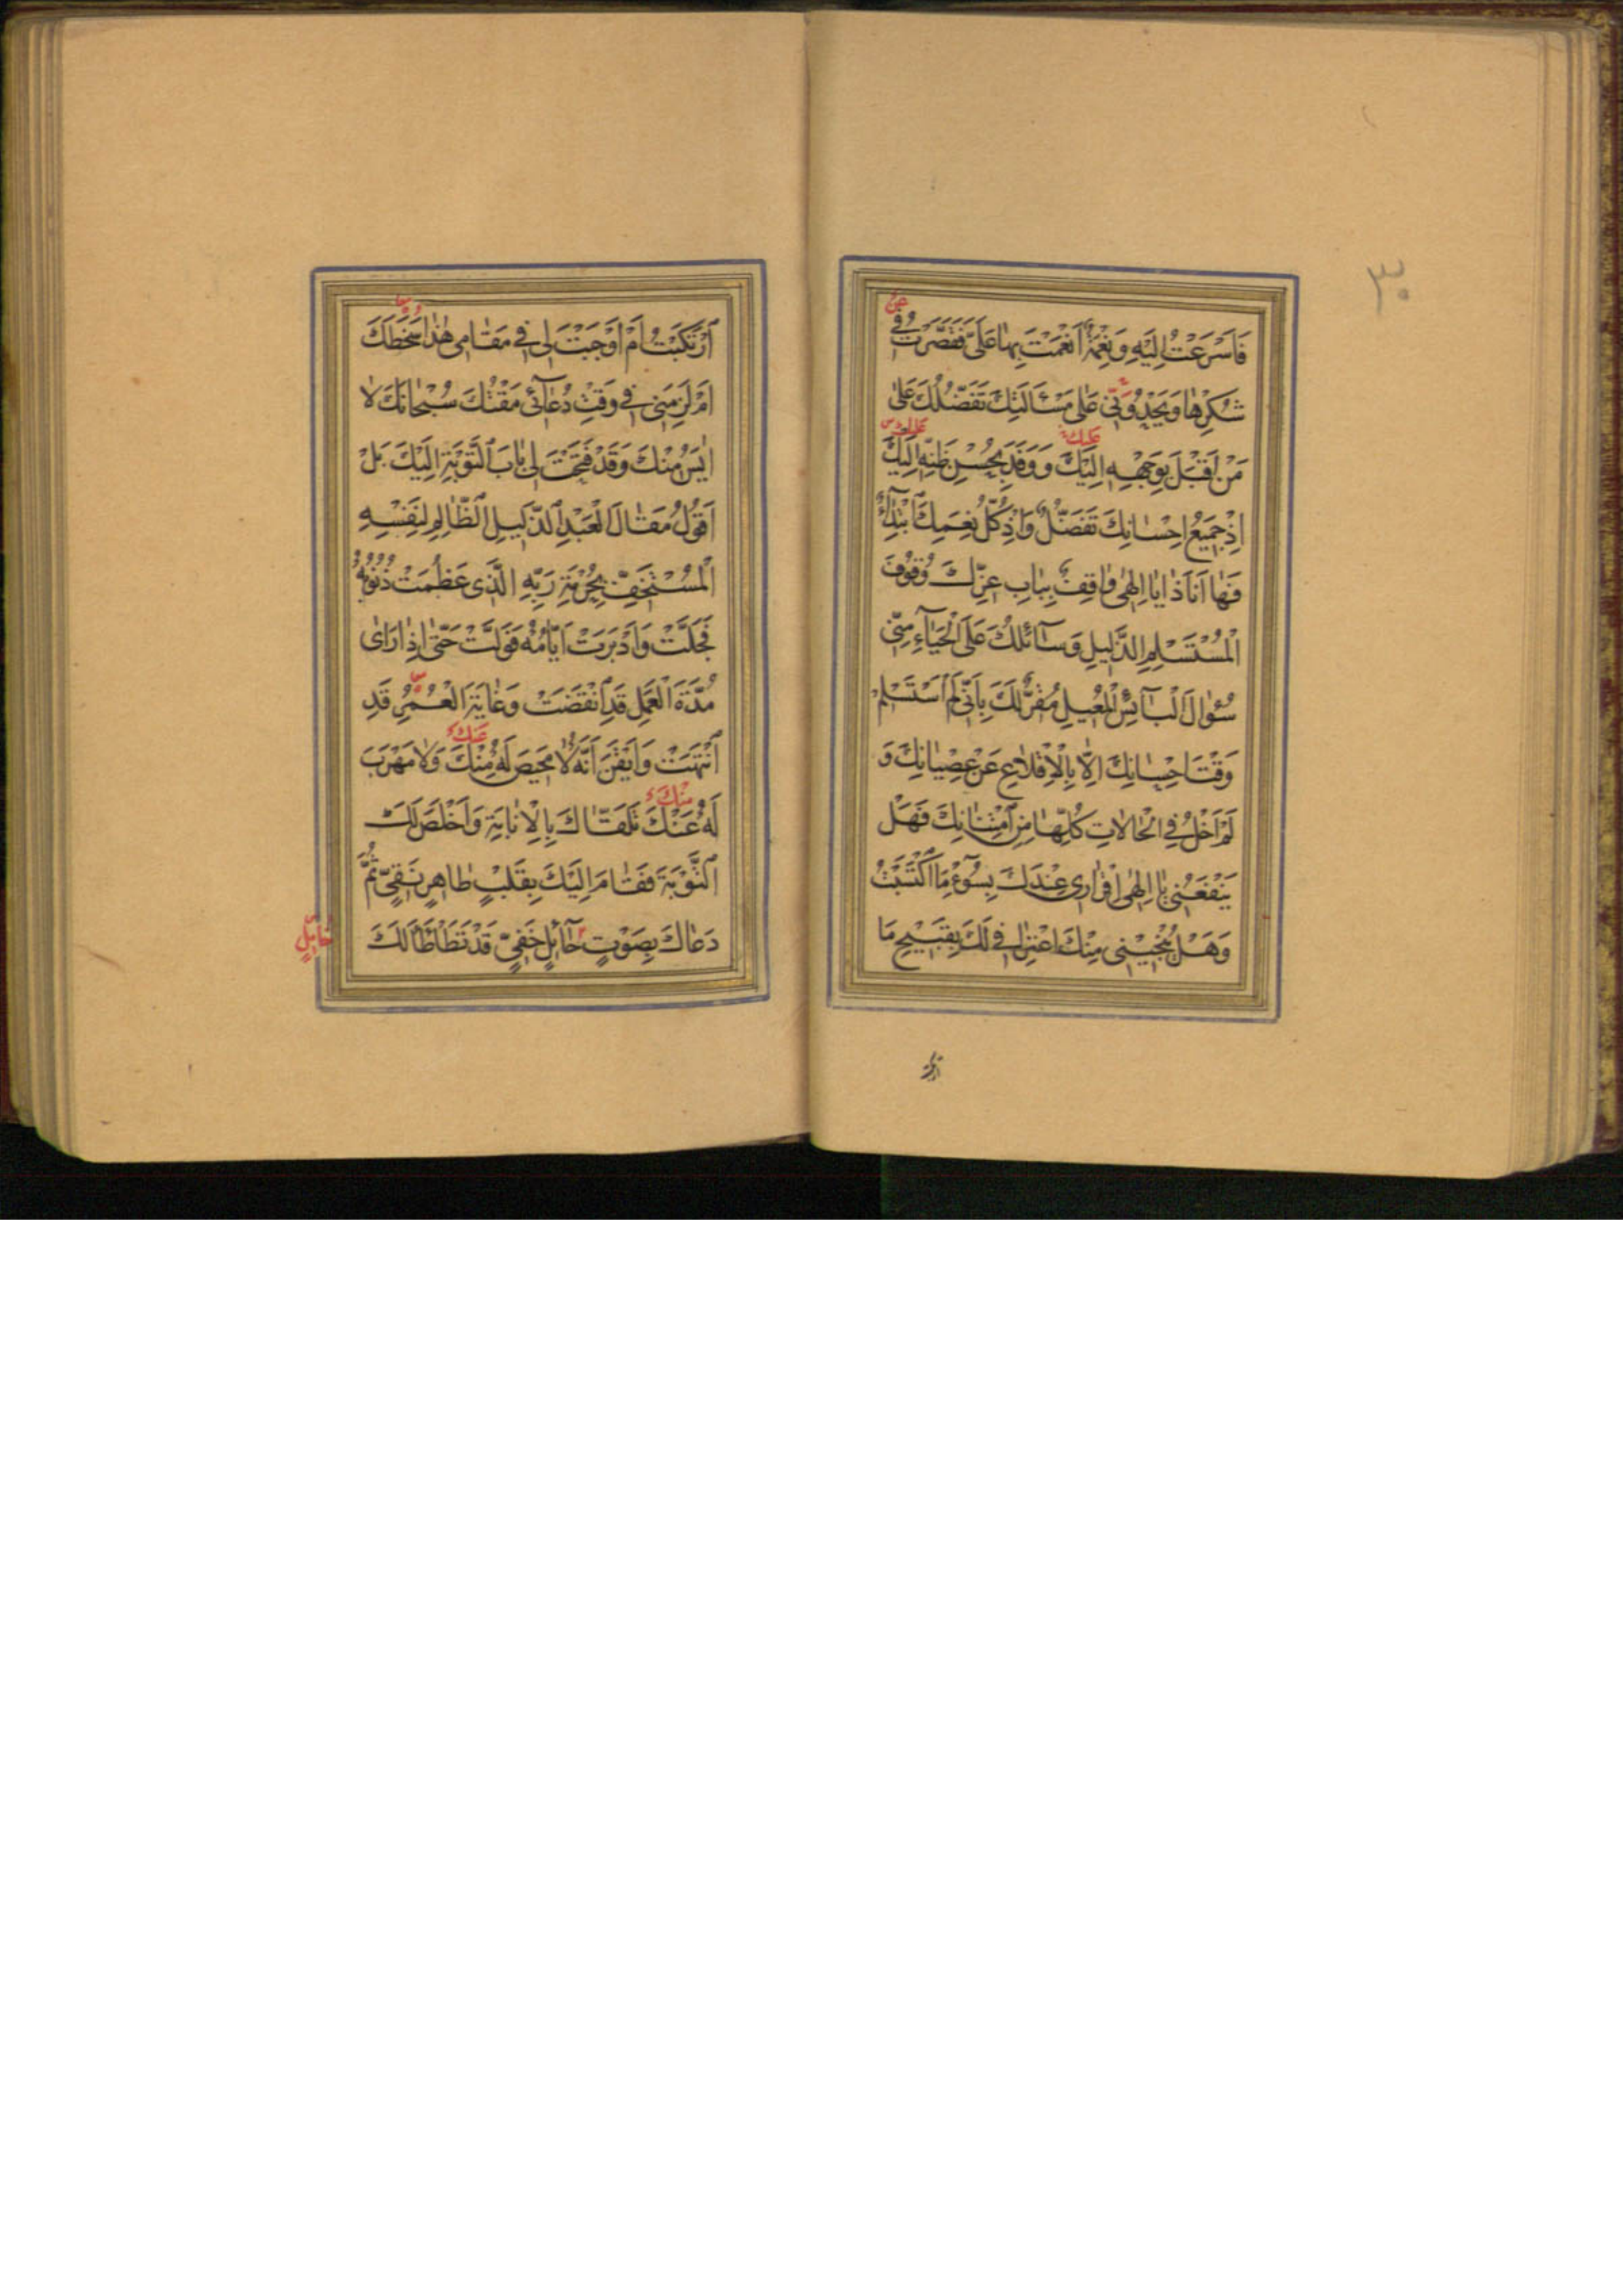 ٣٠
عن
فَاَسْرَعْتُ اِلَيْهِ وَنِعْمَةٌ اَنْعَمْتَ بِهَا عَلَيَّ فَقَصَّرْتُ فِي
شُكْرِهَا وَيَحْدُونِي عَلٰى مَسْئَلَتِكَ تَفَضُّلُكَ عَلٰى
عليك عليك
مَنْ اَقْبَلَ بِوَجْهِهِ اِلَيْكَ وَوَفَدَ بِحُسْنِ ظَنِّهِ اِلَيْكَ
اِذْ جَمِيعُ اِحْسَانِكَ تَفَضُّلٌ وَاِذْ كُلُّ نِعَمِكَ ابْتِدَاءٌ
فَهَا اَنَا ذَا يَا اِلٰهِي وَاقِفٌ بِبَابِ عِزِّكَ وُقُوفَ
الْمُسْتَسْلِمِ الذَّلِيلِ وَسَآئِلُكَ عَلَى الْحَيَآءِ مِنِّي
سُؤَالَ الْبَآئِسِ الْمُعِيلِ مُقِرٌّ لَكَ بِاَنِّي لَمْ اَسْتَسْلِمْ
وَقْتَ اِحْسَانِكَ اِلَّا بِالْاِقْلَاعِ عَنْ عِصْيَانِكَ وَ
لَمْ اَخْلُ فِي الْحَالَاتِ كُلِّهَا مِنِ امْتِنَانِكَ فَهَلْ
يَنْفَعُنِي يَا اِلٰهِي اِقْرَارِي عِنْدَكَ بِسُوٓءِ مَا اكْتَسَبْتُ
وَهَلْ يُنْجِينِي مِنْكَ اعْتِرَافِي لَكَ بِقَبِيحِ مَا
ارتكبت
ارْتَكَبْتُ اَمْ اَوْجَبْتَ لِي فِي مَقَامِي هٰذَا سَخَطَكَ
اَمْ لَزِمَنِي فِي وَقْتِ دُعَآئِي مَقْتُكَ سُبْحَانَكَ لَا
اَيْئَسُ مِنْكَ وَقَدْ فَتَحْتَ لِي بَابَ التَّوْبَةِ اِلَيْكَ بَلْ
اَقُولُ مَقَالَ الْعَبْدِ الذَّلِيلِ الظَّالِمِ لِنَفْسِهِ
الْمُسْتَخِفِّ بِحُرْمَةِ رَبِّهِ الَّذِي عَظُمَتْ ذُنُوبُهُ
فَجَلَّتْ وَاَدْبَرَتْ اَيَّامُهُ فَوَلَّتْ حَتّٰى اِذَا رَاٰى
مُدَّةَ الْعَمَلِ قَدِ انْقَضَتْ وَغَايَةَ الْعُمُرِ قَدِ
عنك
انْتَهَتْ وَاَيْقَنَ اَنَّهُ لَا مَحِيصَ لَهُ مِنْكَ وَلَا مَهْرَبَ
منك
لَهُ عَنْكَ تَلَقَّاكَ بِالْاِنَابَةِ وَاَخْلَصَ لَكَ
التَّوْبَةَ فَقَامَ اِلَيْكَ بِقَلْبٍ طَاهِرٍ نَقِيٍّ ثُمَّ
دَعَاكَ بِصَوْتٍ حَآئِلٍ خَفِيٍّ قَدْ تَطَأْطَأَ لَكَ